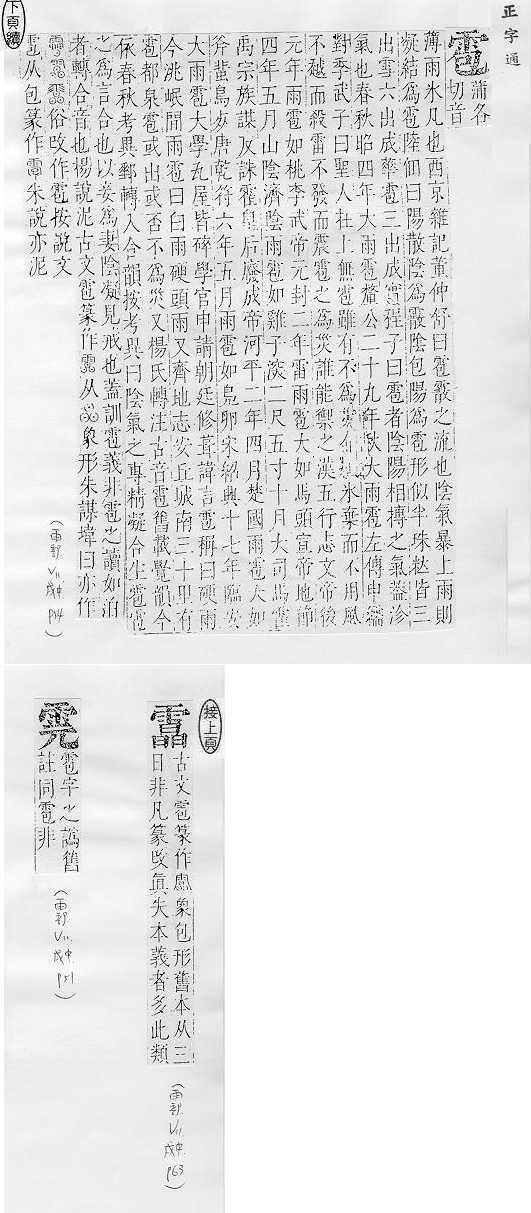 正字通
雹
蒲各
切音
薄雨氷凡也西京雜記董仲舒曰雹霰之流也陰氣暴上雨則
凝結為雹陸佃曰陽散陰為霰陰包陽為雹形似半珠粒皆三
出雪六出成華雹三出成實程子曰雹者陰陽相摶之氣蓋沴
氣也春秋昭四年大雨雹釐公二十九年秋大雨雹左傳申豐
對季武子曰聖人在上無雹雖有不為災 氷棄而不用風
不越而殺雷不發而震雹之為災誰能禦之漢五行志文帝後
元年雨雹如桃李武帝元封三年雷雨雹大如馬頭宣帝地節
四年五月山陰濟陰雨雹如雞子深二尺五寸十月大司馬霍
禹宗族謀反誅霍皇后廢成帝河平二年四月楚國雨雹大如
斧蜚鳥死唐乾符六年五月雨雹如鳧卵宋紹興十七年臨安
大雨雹大學瓦屋皆碎學官申請朝廷修葺諱言雹稱曰硬雨
今洮岷間雨雹曰白雨硬頭雨又齊地志安丘城南三十里有
雹都泉雹或出或否不為災又楊氏轉注古音雹舊載覺韻今
依春秋考異郵轉入合韻按考異曰陰氣之專精凝合生雹雹
之為言合也以妾為妻陰凝見戒也蓋訓雹義非雹之讀如泊
者轉合音也楊說泥古文雹篆作 从 象形朱謀㙔曰亦作
俗攺作雹按說文
雹从包篆作 朱說亦泥
(雨部 V11 戌中 P14)
下頁續
接上頁
䨔
古文雹篆作 象包形舊本从三
日非凡篆攺眞失本義者多此類
(雨部 V11 戌中 P63)
雹字之譌舊
註同雹非
(雨部 V11 戌中 P51)